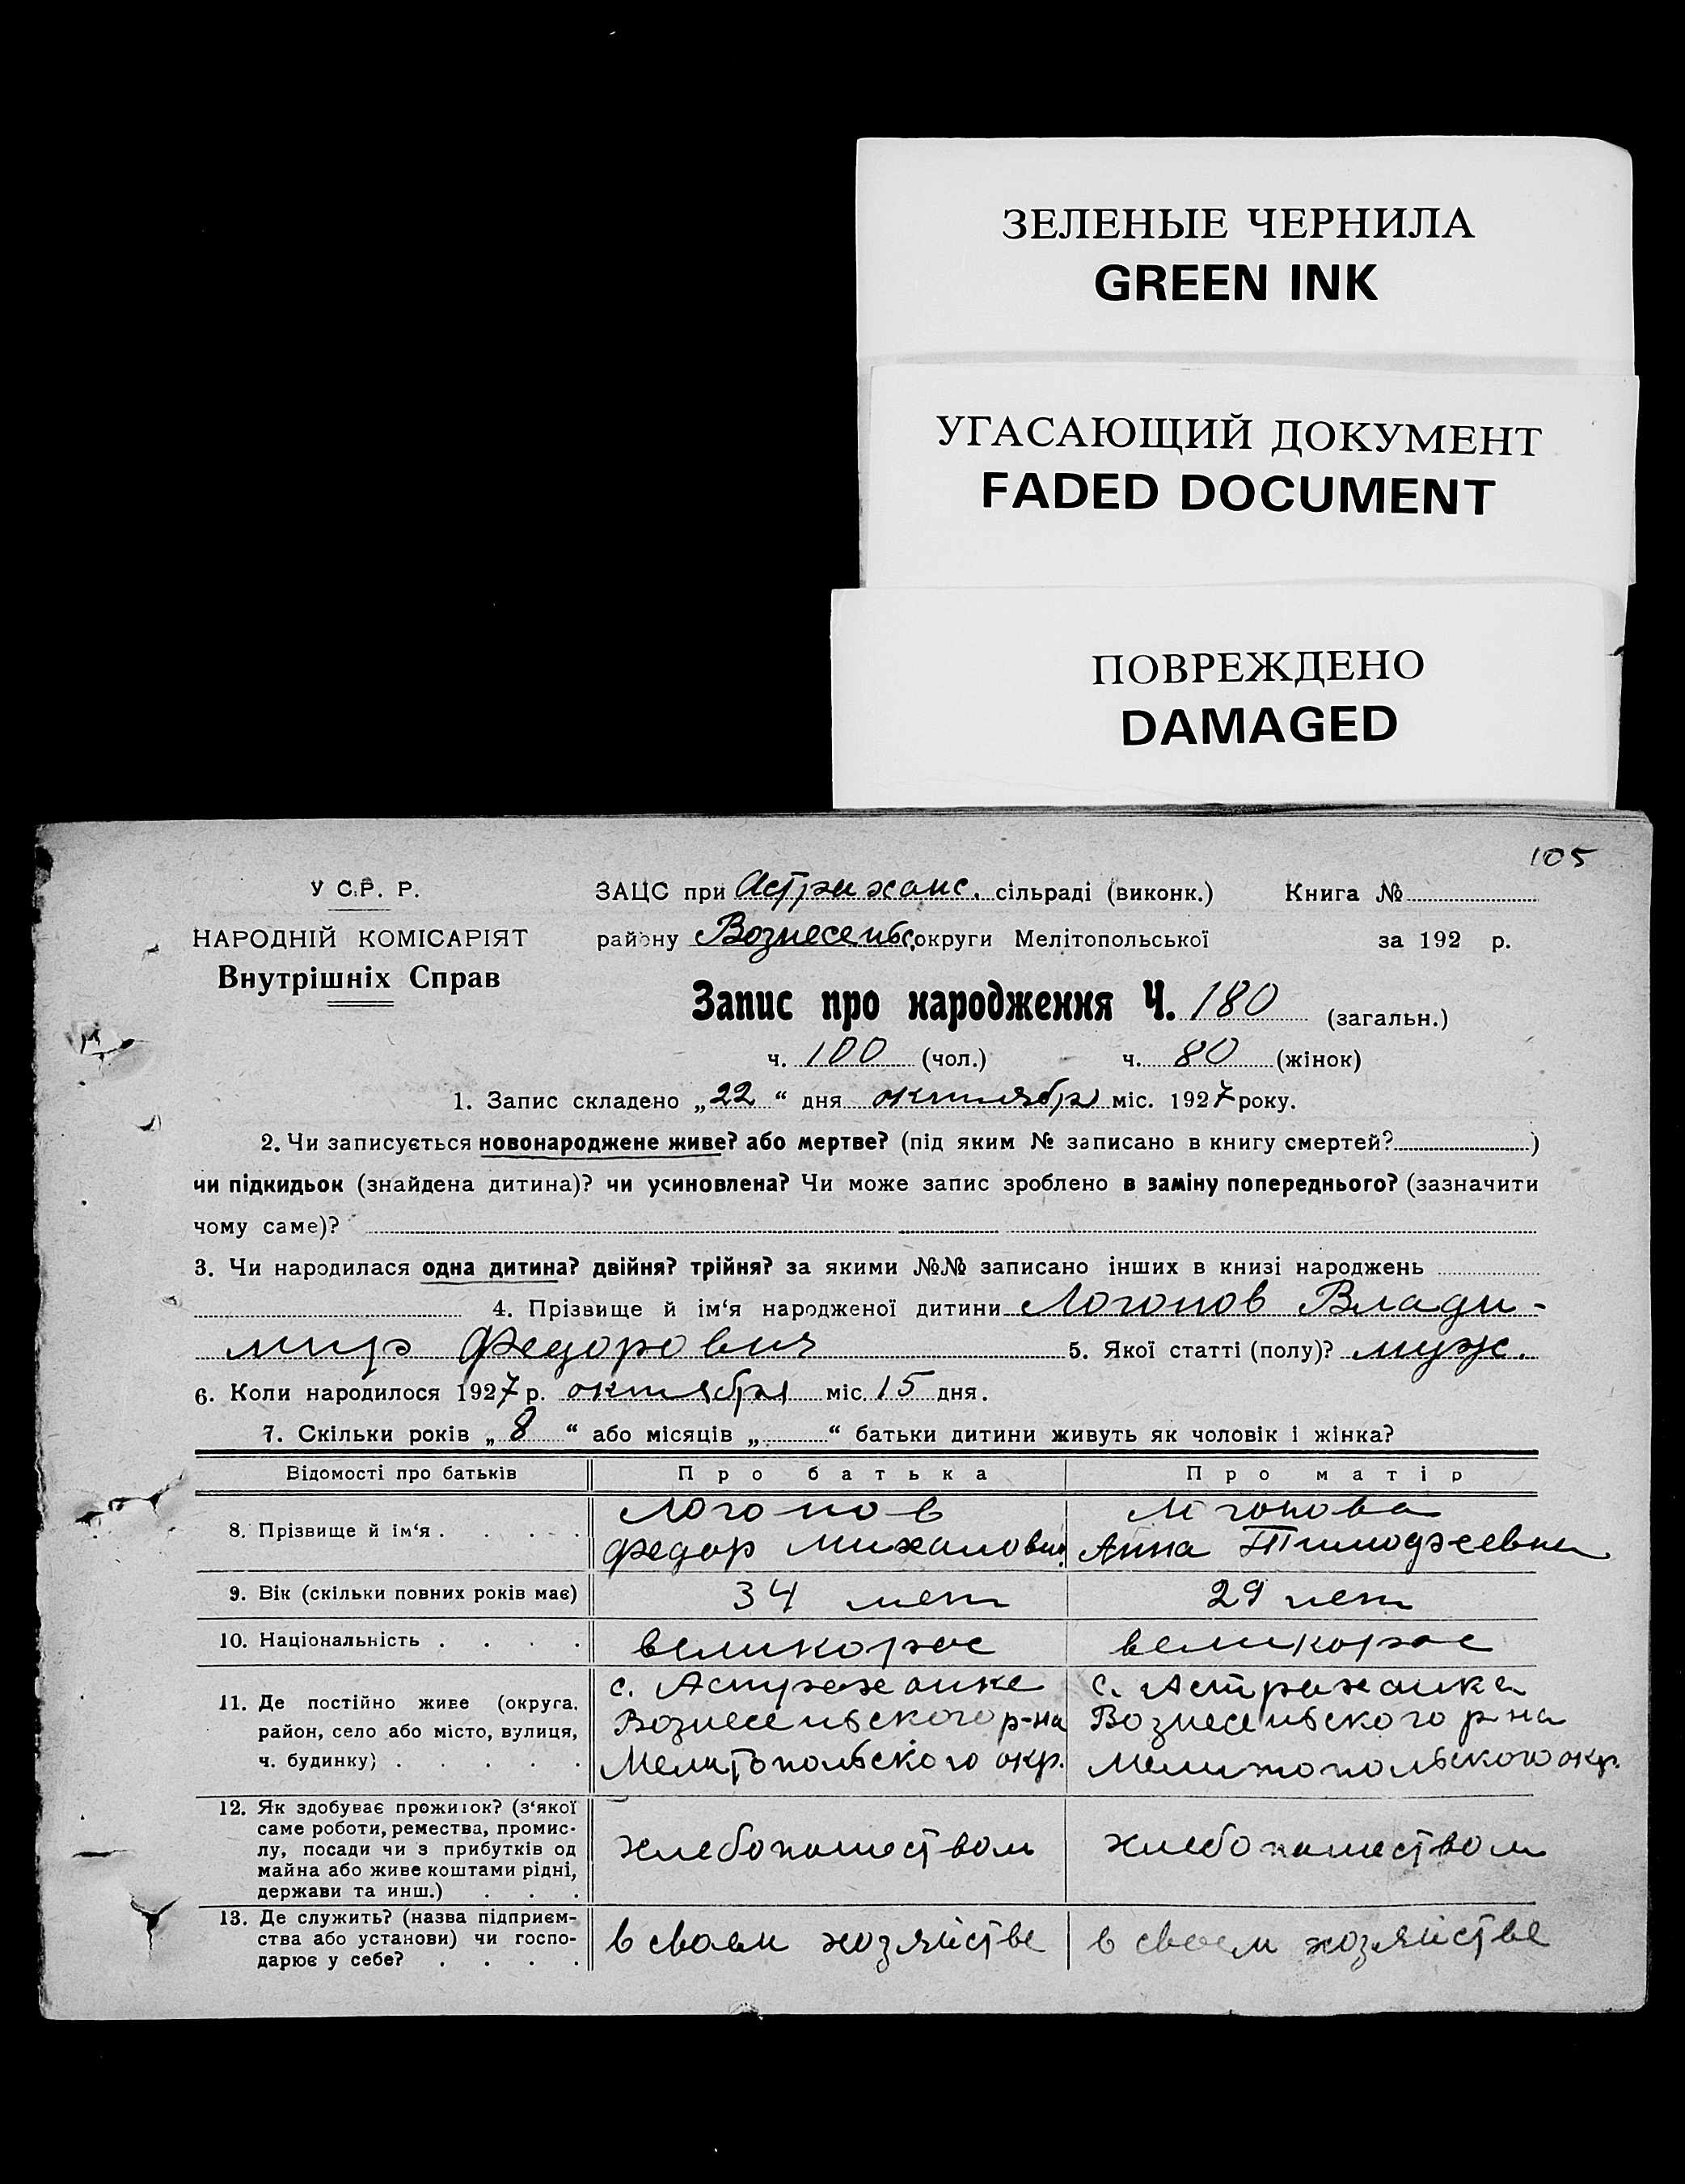 ЗЕЛЕНЫЕ ЧЕРНИЛА
GREEN INK
УГАСАЮЩИЙ ДОКУМЕНТ
FADED DOCUMENT
ПОВРЕЖДЕНО
DAMAGED
105
У С.Р. Р.
НАРОДНІЙ КОМІСАРІЯТ
Внутрішніх Справ
ЗАЦС при Астраханс. сільраді (виконк.) Книга №
району Вознесенс. округи Мелітопольської за 192 р.
Запис про народження Ч. 180 (загальн.)
ч. 100 (чол.) ч. 80 (жінок)
1. Запис складено „22“ дня октября міс. 1927 року.
2. Чи записується новонароджене живе? або мертве? (під яким № записано в книгу смертей? )
чи підкидьок (знайдена дитина)? чи усиновлена? Чи може запис зроблено в заміну попереднього? (зазначити
чому саме)?
3. Чи народилася одна дитина? двійня? трійня? за якими №№ записано інших в книзі народжень
4. Прізвище й ім‘я народженої дитини Логонов Влади-
мир Федорович 5. Якої статті (полу)? муж.
6. Коли народилося 1927 р. октября міс. 15 дня.
7. Скільки років „8“ або місяців „ “ батьки дитини живуть як чоловік і жінка?
Відомості про батьків Про батька Про матір
8. Прізвище й ім‘я . . . . Логонов
Федор Анна Тимофеевна
9. Вік (скільки повних років має) 34 лет 29 лет
10. Національність . . . . великорос великорос
11. Де постійно живе (округа, с. Астраханке с. Астраханка
район, село або місто, вулиця, Вознесенського р-на Вознесенського р-на
ч. будинку) . . . . . Мелитопольского окр. Мелитопольского окр.
12. Як здобуває прожиток? (з‘якої
саме роботи, ремества, промис-
лу, посади чи з прибутків од хлебопашеством хлебопашеством
майна або живе коштами рідні,
держави та инш.) . . .
13. Де служить? (назва підприєм-
ства або установи) чи госпо- в своем хозяйстве в своем хозяйстве
дарює у себе? . . . .